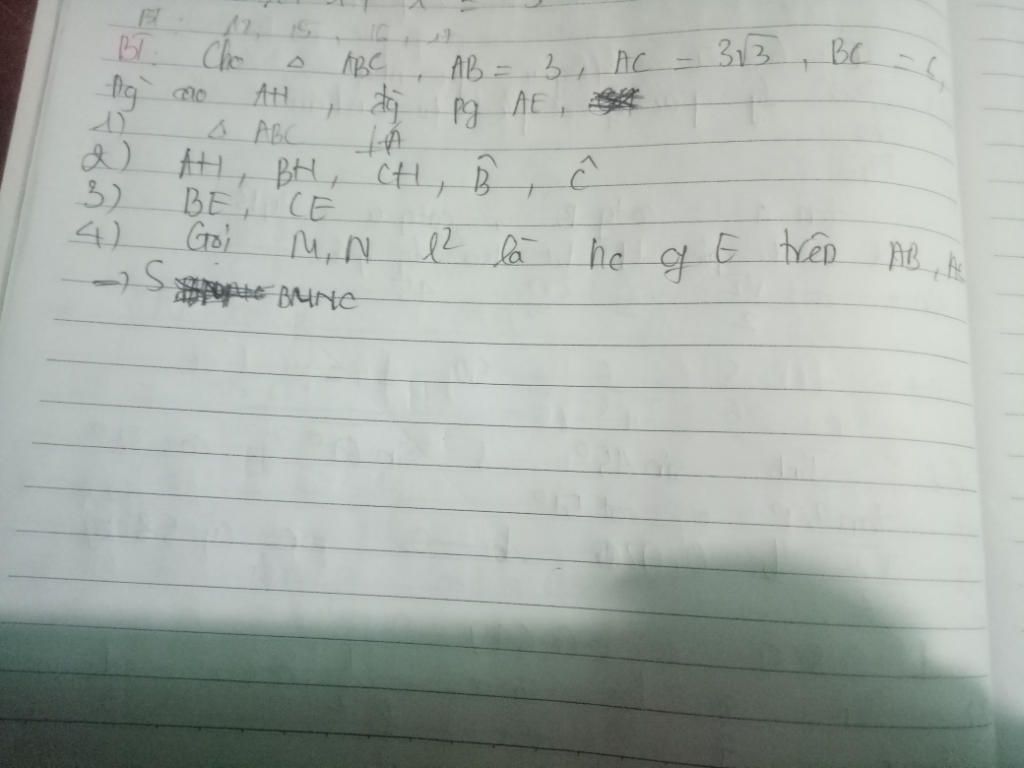 17, 15, 16, 17
BT: Cho △ ABC, AB = 3, AC = 3√3, BC = 6,
đg cao AH, đg pg AE,
1) △ ABC ⊥ A
2) AH, BH, CH, B̂, Ĉ
3) BE, CE
4) Gọi M, N l² là hc of E trên AB, AC
→ S BMNC